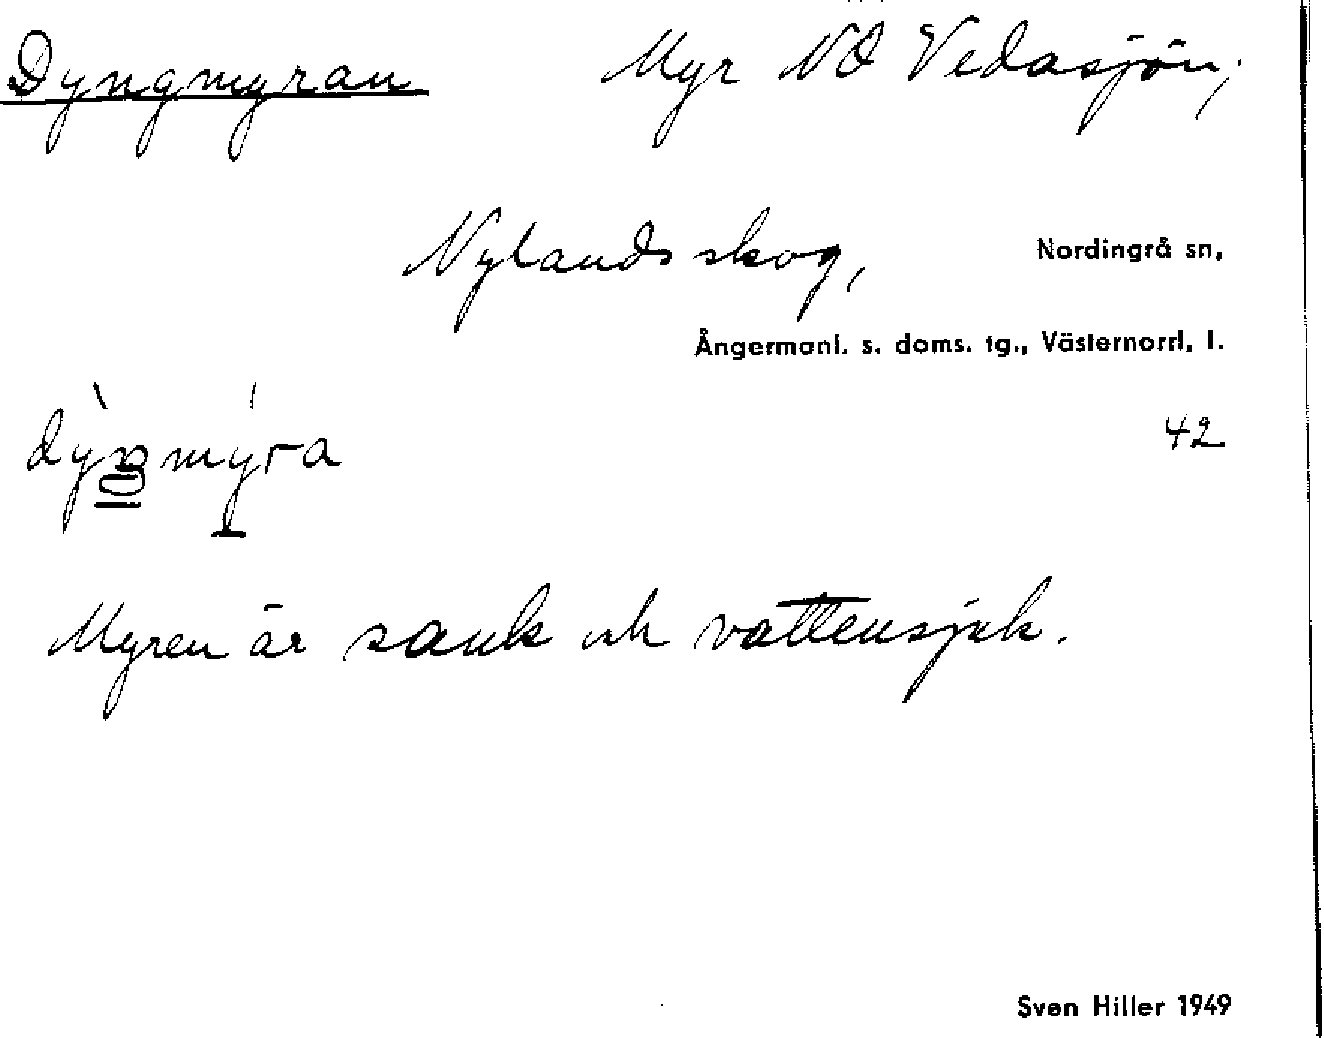 Dyngmyran Myr NO Vedasjön,
Nylands skog, Nordingrå sn,
Ångermanl. s. doms. tg., Västernorrl. l.
42
Myren är sank och vattensjuk.
Sven Hiller 1949